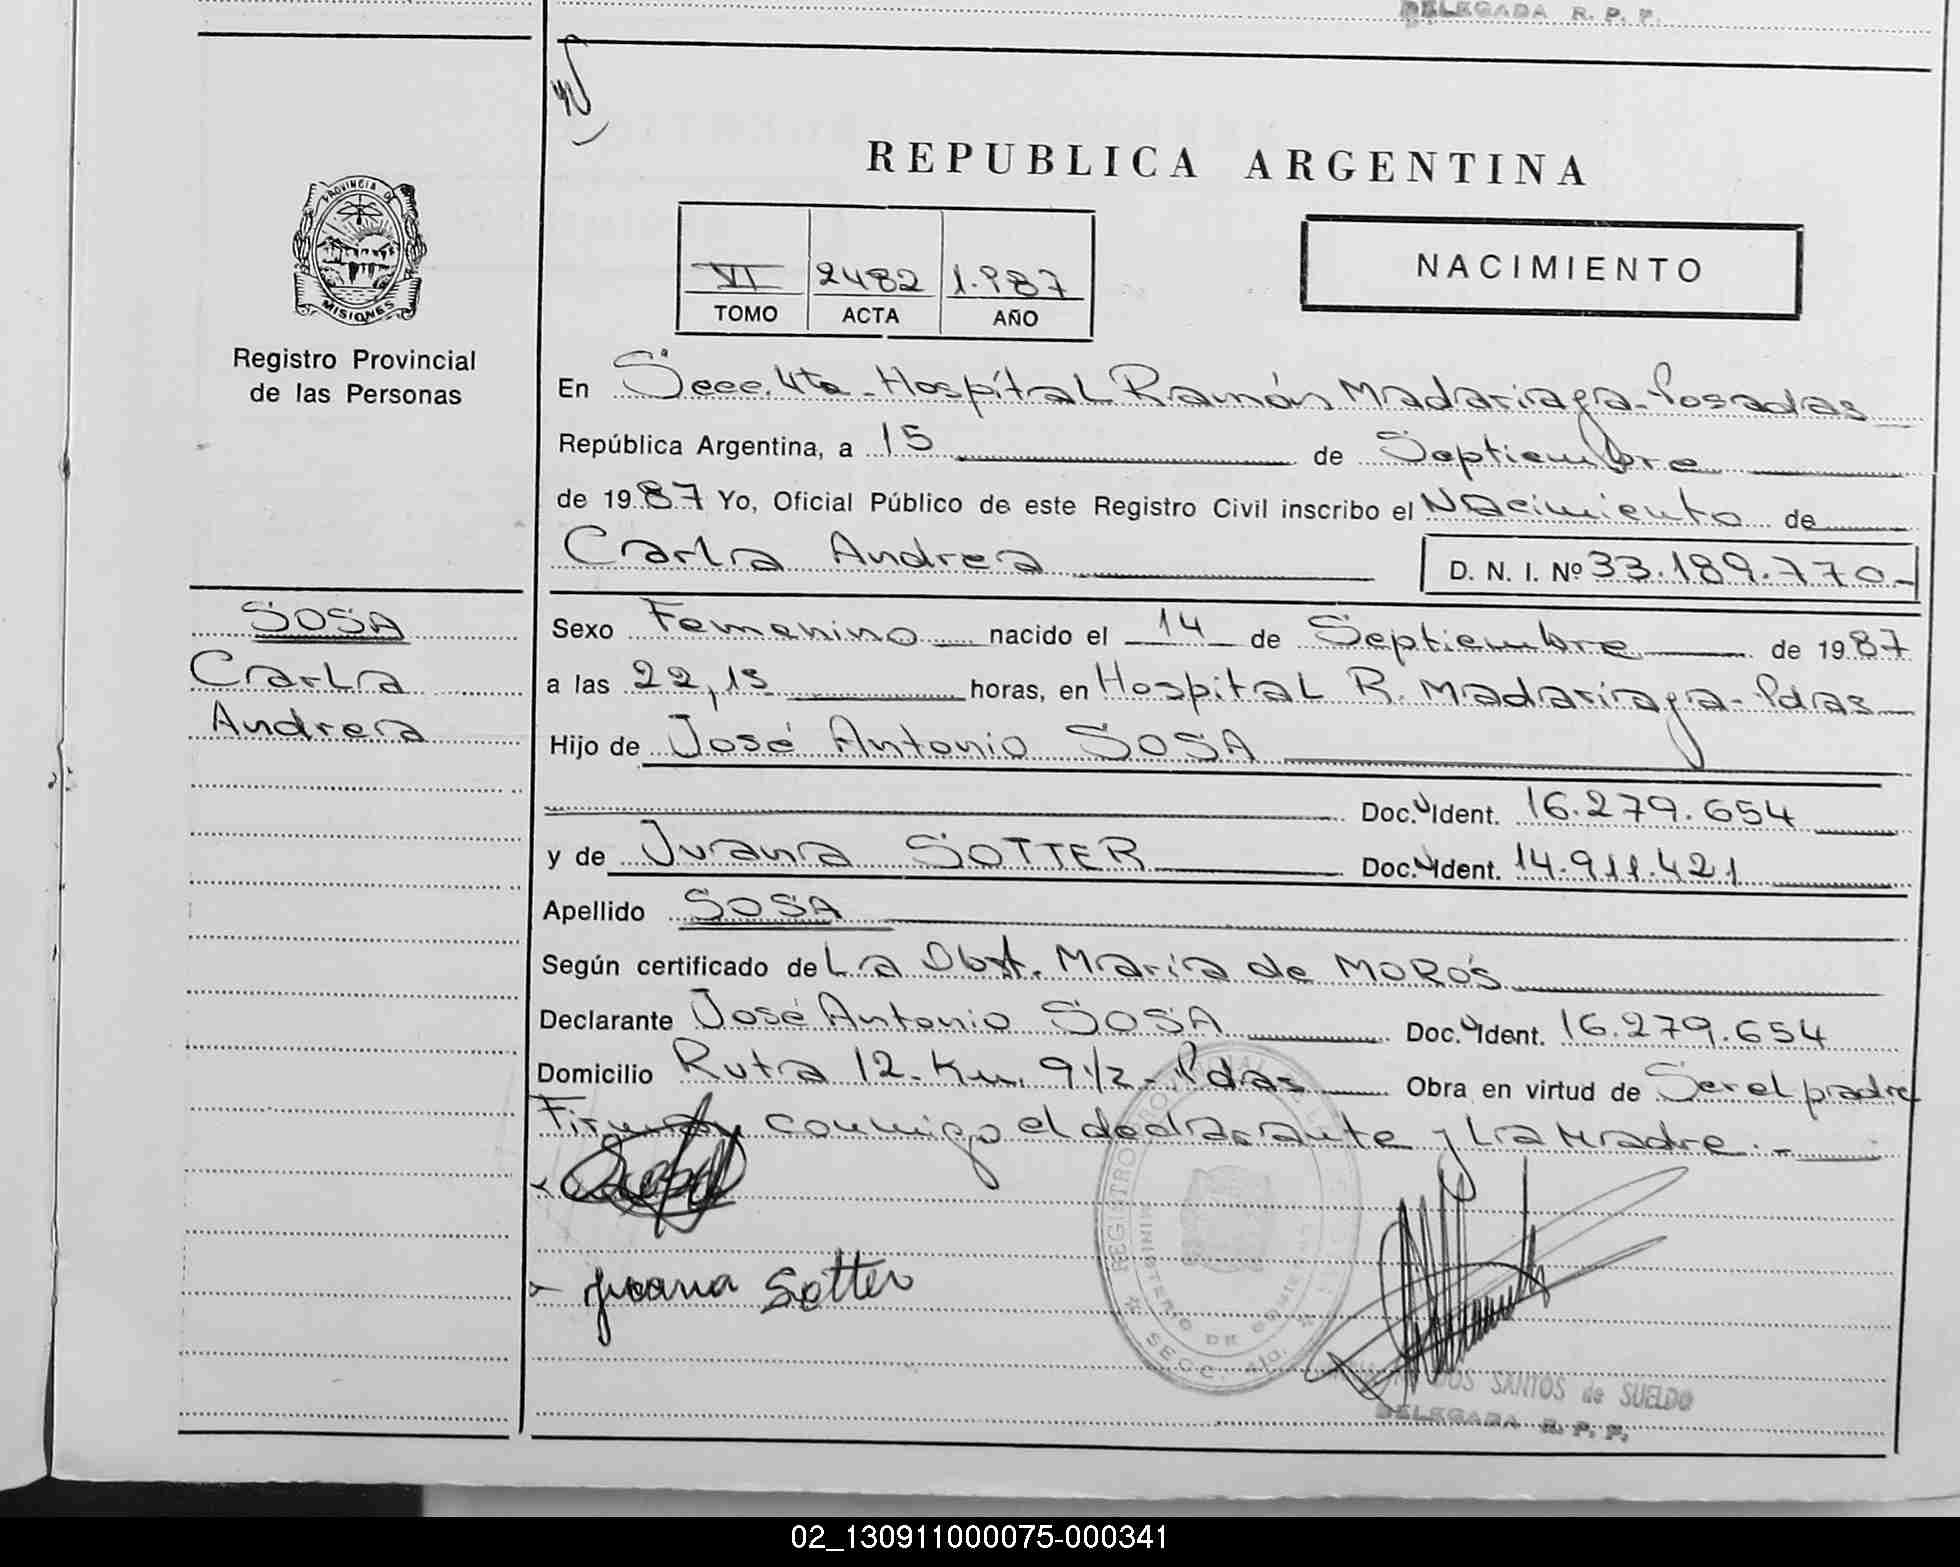 DELEGADA R. P. P.
REPUBLICA ARGENTINA
PROVINCIA DE
MISIONES
Registro Provincial
de las Personas
VI 2482 1.987
TOMO ACTA AÑO
NACIMIENTO
En Secc. 4ta - Hospital Ramón Madariaga - Posadas
República Argentina, a 15 de Septiembre
de 1987 Yo, Oficial Público de este Registro Civil inscribo el Nacimiento de
Carla Andrea D. N. I. Nº 33.189.770.-
SOSA
Carla
Andrea
Sexo Femenino nacido el 14 de Septiembre de 1987
a las 22,15 horas, en Hospital R. Madariaga - Pdas
Hijo de José Antonio SOSA
Doc. Ident. 16.279.654
y de Juana SOTTER Doc. Ident. 14.911.421
Apellido SOSA
Según certificado de La Obst. María de MOROS
Declarante José Antonio SOSA Doc. Ident. 16.279.654
Domicilio Ruta 12 - Km. 9 1/2 - Pdas Obra en virtud de Ser el padre
Firman conmigo el declarante y la Madre. -
Juana Sotter
REGISTRO PRO
MINISTERIO DE GOBIERNO
SECC. 4ta.
DOS SANTOS de SUELDO
DELEGADA R. P. P.
02_130911000075-000341